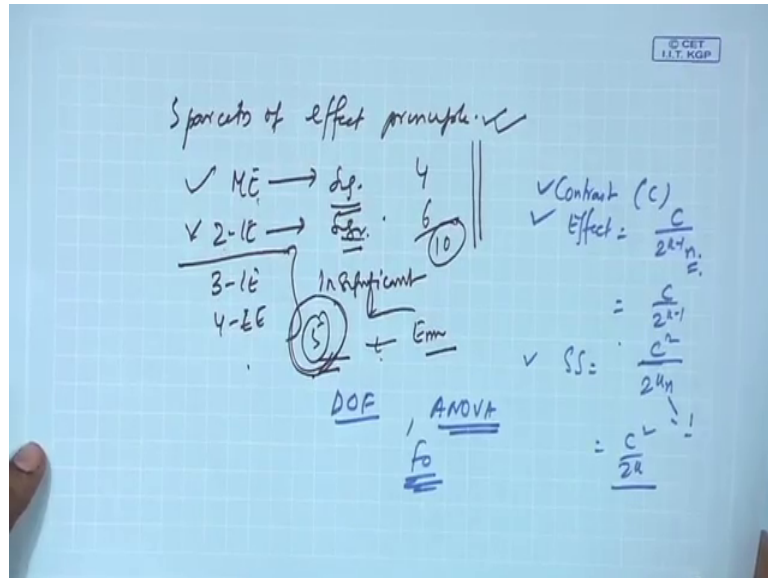 © CET
I.I.T. KGP
Sparcity of effect principle. ✓
✓ ME → Sig. 4
✓ 2-IE → Sig. 6
10
3-IE Insignificant
4-IE
5 + Error
DOF, ANOVA
F0
✓ Contrast (C)
✓ Effect = C / 2^{k-1} n
= C / 2^{k-1}
✓ SS = C² / 2^k n
= C² / 2^k